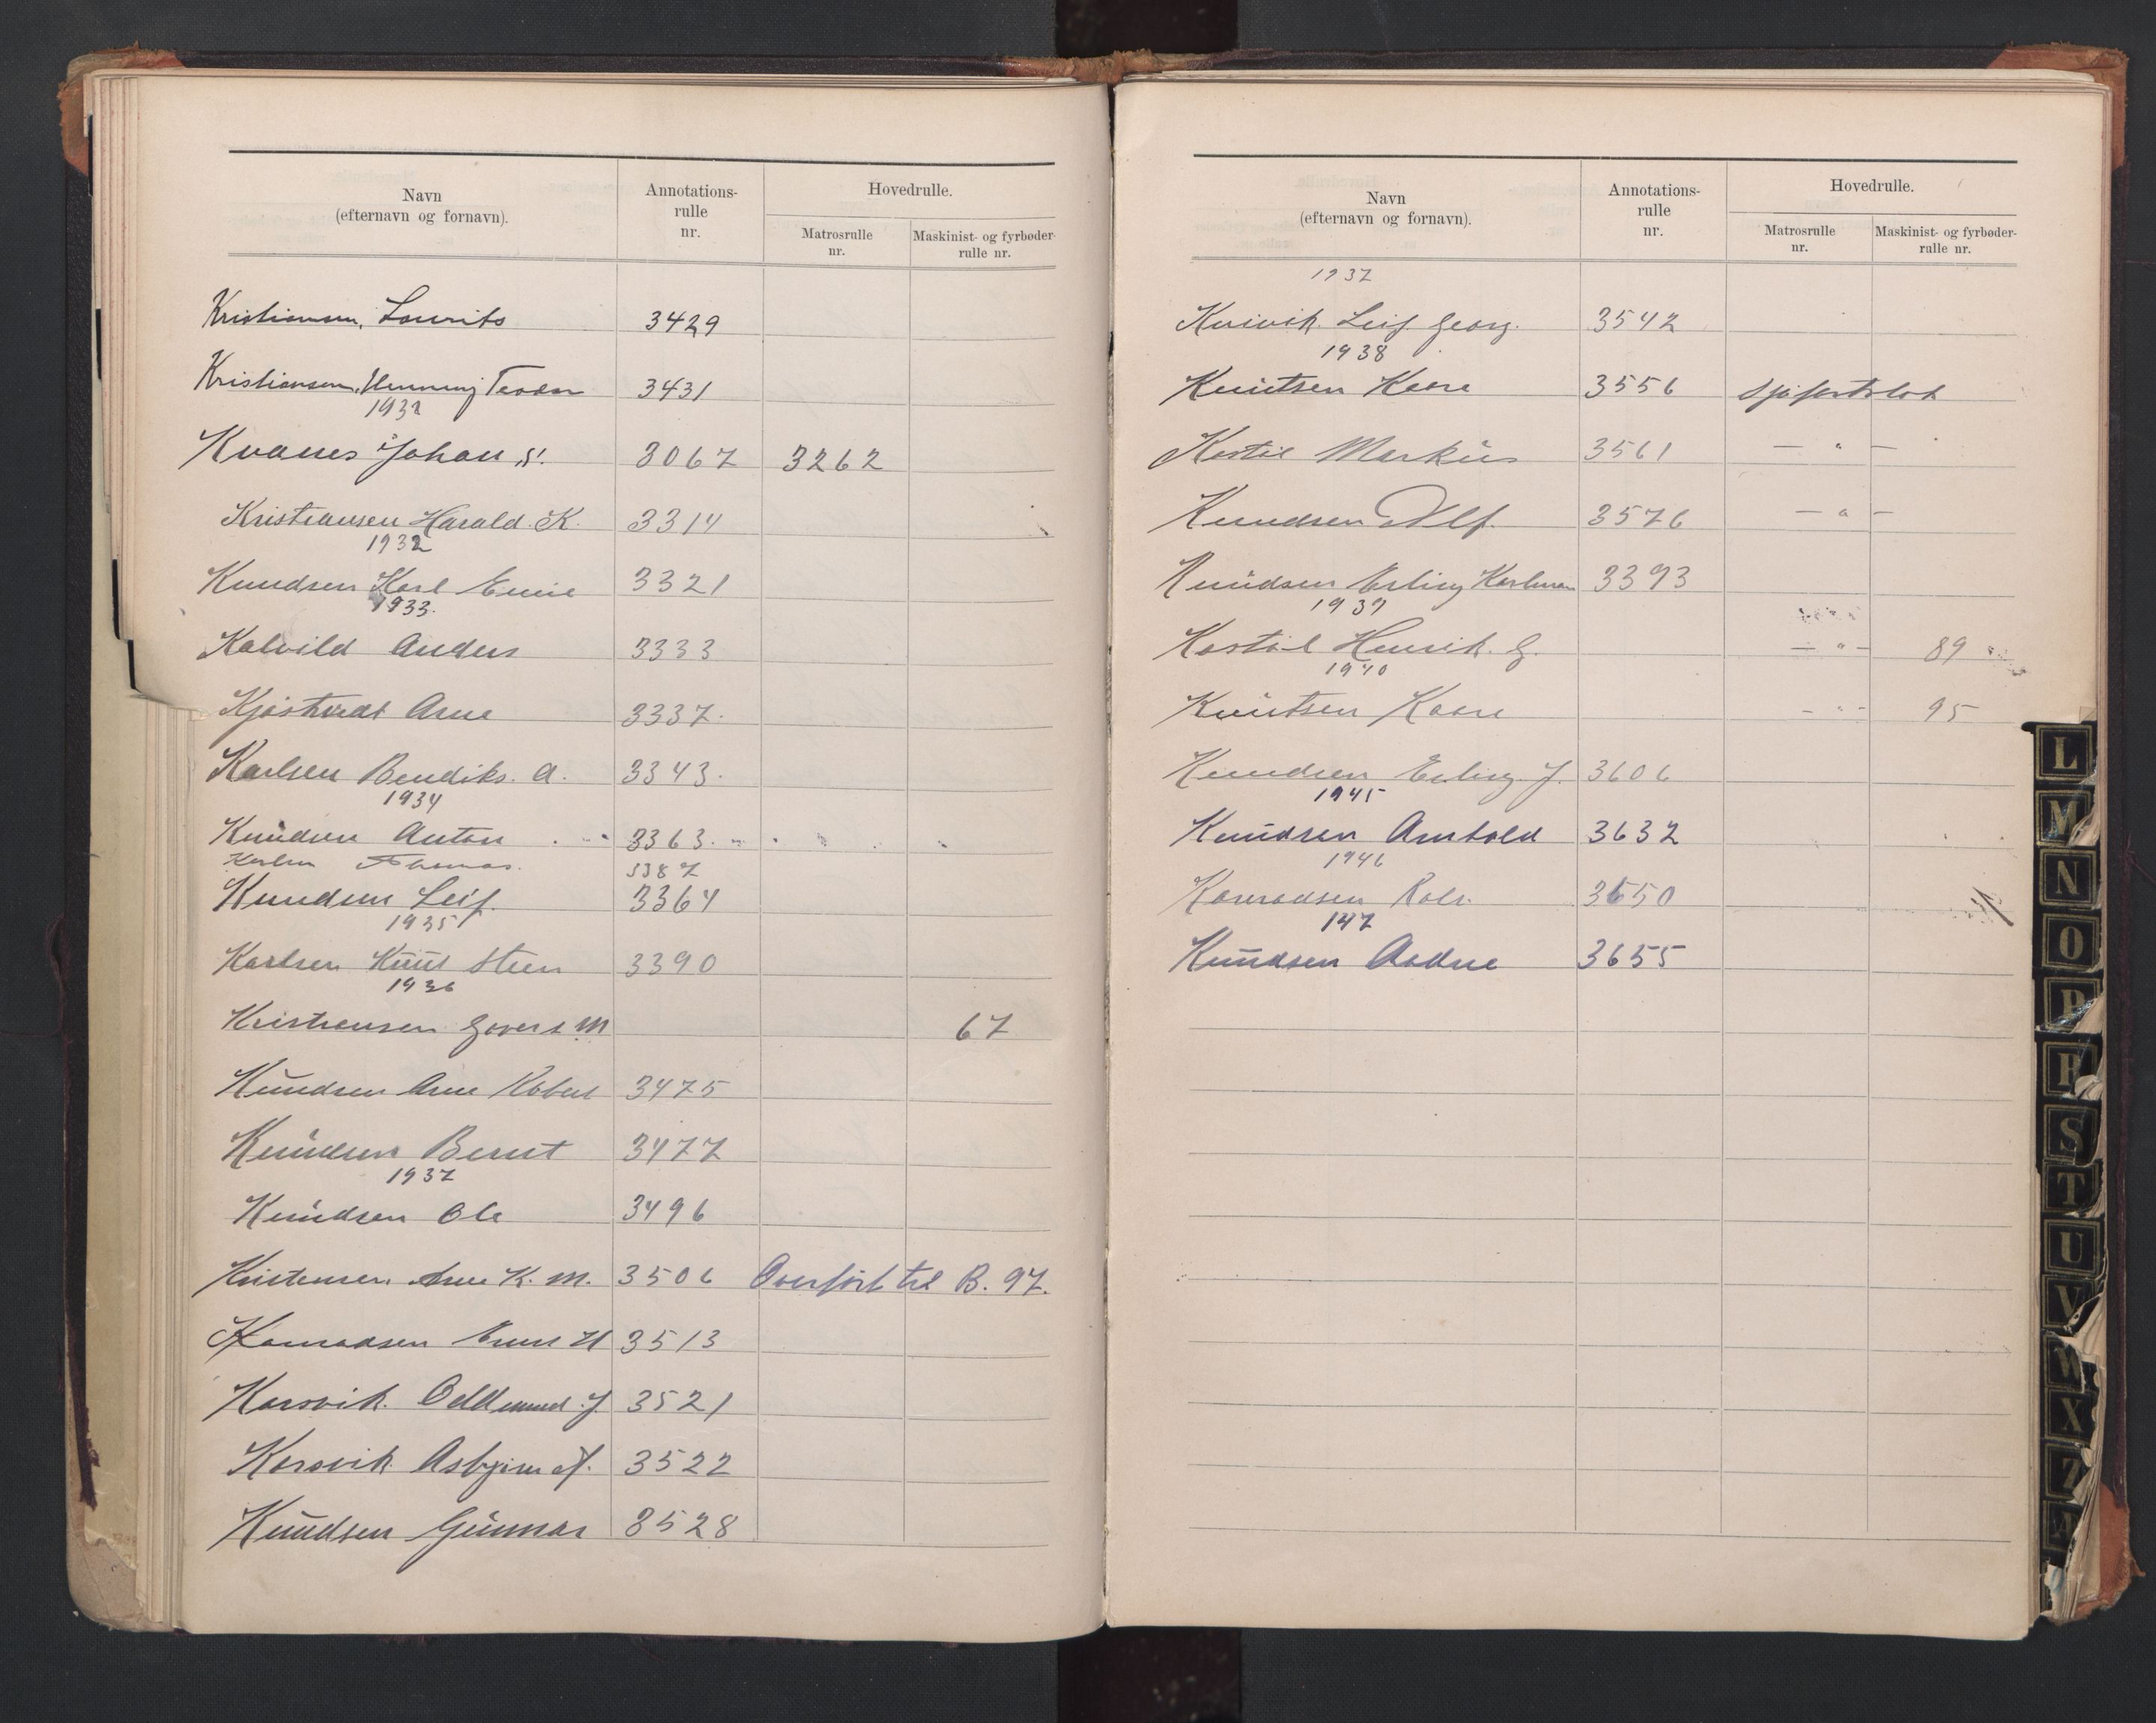 Navn
(efternavn og fornavn).
Annotations-
rulle
nr.
Hovedrulle.
Matrosrulle
nr.
Maskinist- og fyrbøder-
rulle nr.
Kristiansen, Lourits 3429
Kristiansen, Henning Teodor 3431
1932
Kvanes Johan S. 3067 3262
Kristiansen Harald. K. 3314
1932
Knudsen Karl Emil 3321
1933.
Kalvild Anders 3333
Kjøstvedt Arne 3337.
Karlsen Bendiks. A. 3343.
1934
Knudsen Anton 3363.
Karlsen Thomas. 3387
Knudsen Leif. 3364
1935
Karlsen Knut Steen 3390
1936
Kristiansen Govert M 67
Knudsen Arne Robert 3475
Knudsen Bernt 3477
1937
Knudsen Ole 3496
Kristensen. Arne K. M. 3506 Overført til B. 97.
Konradsen Ernst H 3513
Korsvik. Oddmund. J. 3521
Korsvik. Asbjørn J. 3522
Knudsen Gunnar 3528
Navn
(efternavn og fornavn).
Annotations-
rulle
nr.
Hovedrulle.
Matrosrulle
nr.
Maskinist- og fyrbøder-
rulle nr.
1937
Kvivik. Leif Georg. 3542
1938
Knutsen Kaare 3556 Sjøfartsbok
Kostøl Markus 3561 — " —
Knudsen Alf. 3576 — " —
Knudsen Erling Karluman 3393
1939
Kostøl Henrik. G. — " — 89
1940
Knutsen Kaare - " - 95
Knudsen Erling J. 3606
1945
Knudsen Arnhold 3632
1946
Konradsen Rolv. 3650
147
Knudsen Aadne 3655
L
M
N
O
P
R
S
T
U
V
W
X
Z